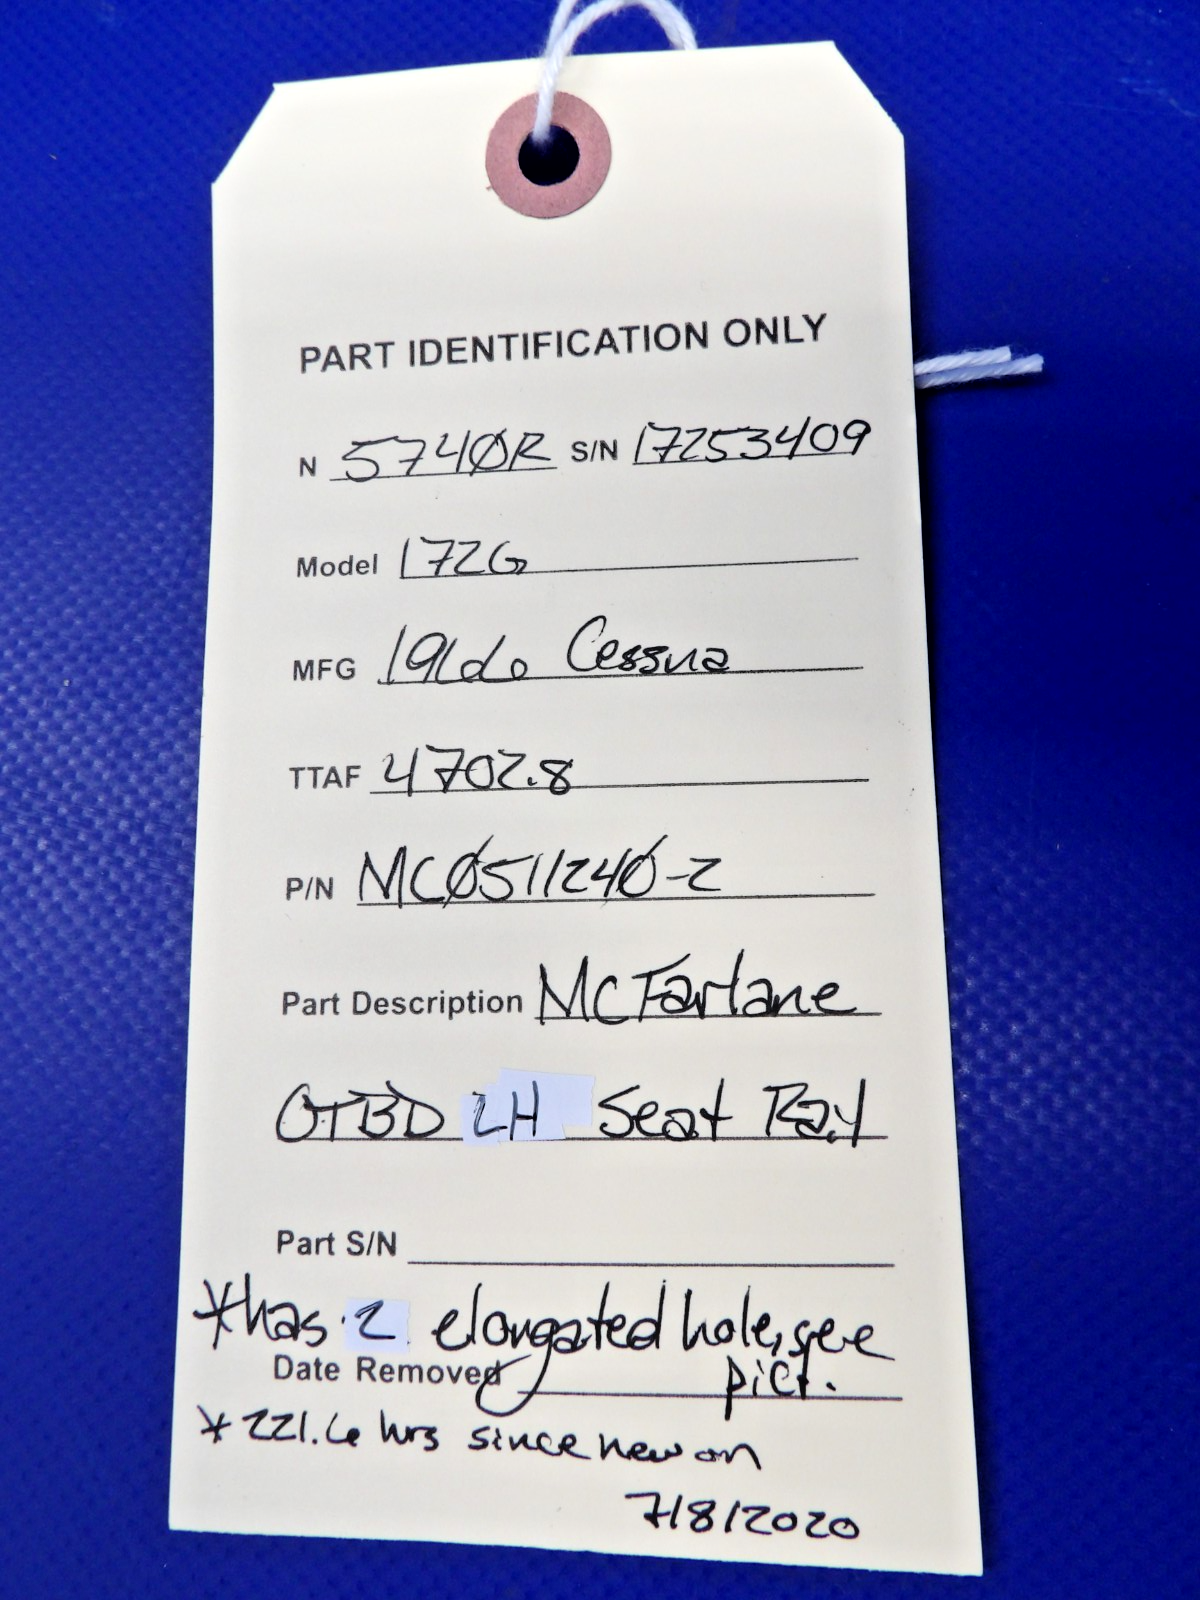 PART IDENTIFICATION ONLY
N 5740R S/N 17253409
Model 172G
MFG 1966 Cessna
TTAF 4702.8
P/N MC0511240-2
Part Description McFarlane
OTBD LH Seat Rail
Part S/N
*has 2 elongated hole, see
Date Removed pict.
*221.6 hrs since new on
7/8/2020